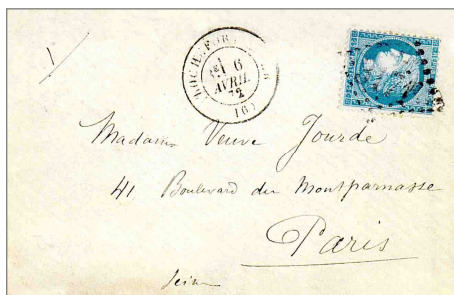 6
AVRIL
72
(16)
Madame Veuve Jourde
41 Boulevard du Montparnasse
Paris
Seine